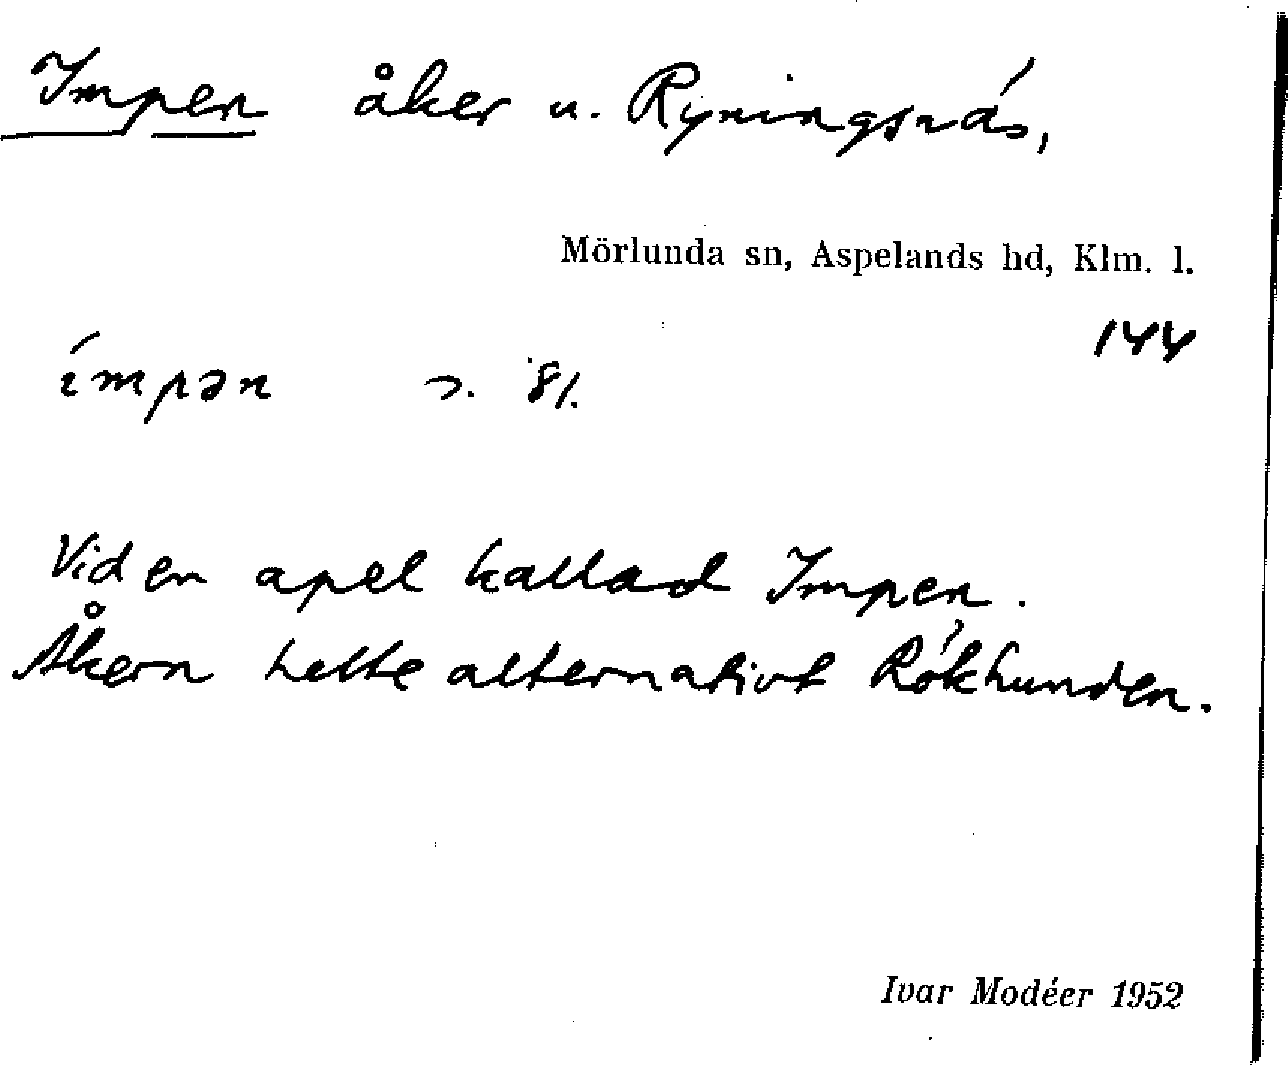 Impen åker u. Ryningsnäs,
Mörlunda sn, Aspelands hd, Klm. l.
144
ímpən 81.
Vid en apel kallad Impen.
Åkern hette alternativt Rökhunden.
Ivar Modéer 1952